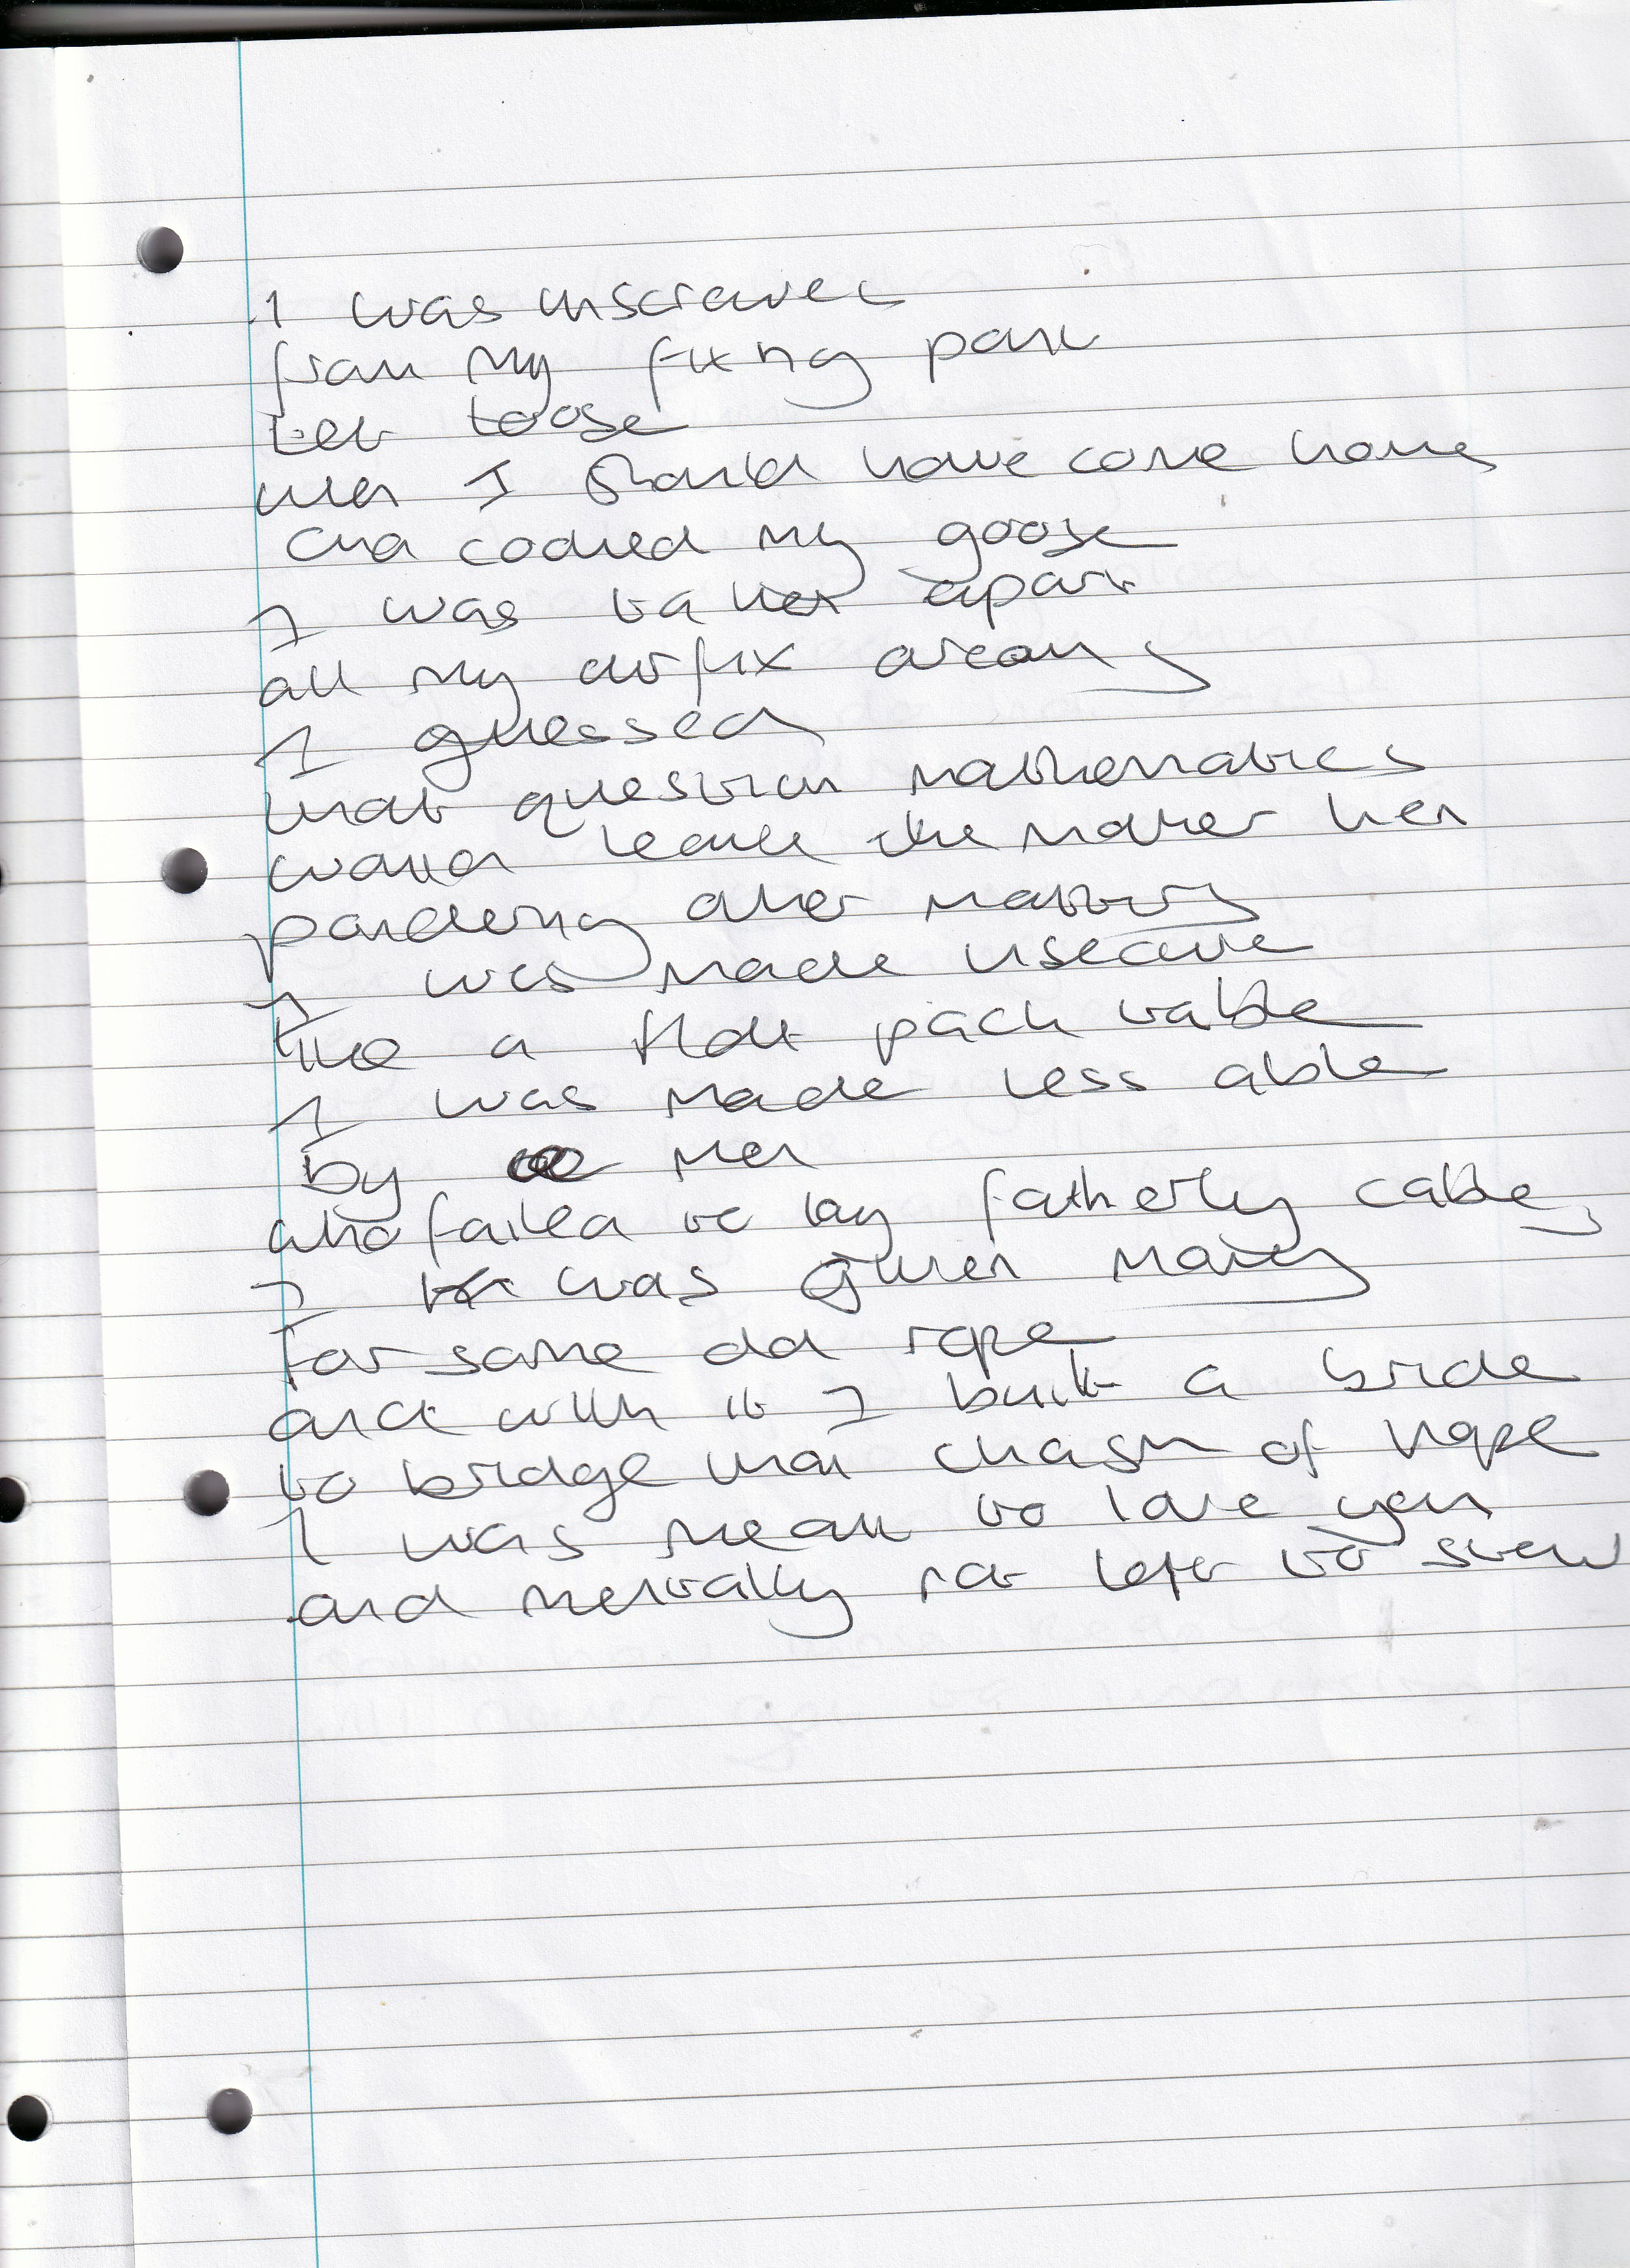 I was unscrewed
from my fixing point
Let loose
when I should have come home
and cooked my goose
I was taken apart
all my airfix dreams
I guessed
that question mathematics
would leave the maker then
pondering other matters
I was made insecure
like a flat pack table
I was made less able
by men
who failed to lay fatherly cables
I was given money
for some old rope
and with it I built a bride
to bridge that chasm of hope
I was meant to love you
and mentally not left to stew